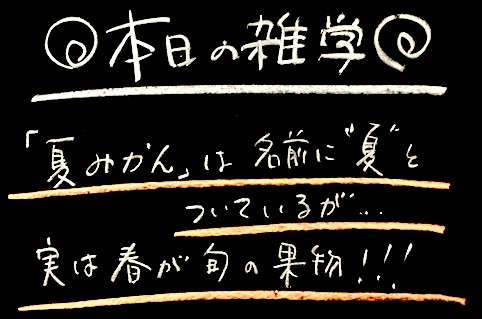 本日の雑学
「夏みかん」は名前に"夏"と
ついているが…
実は春が旬の果物!!!